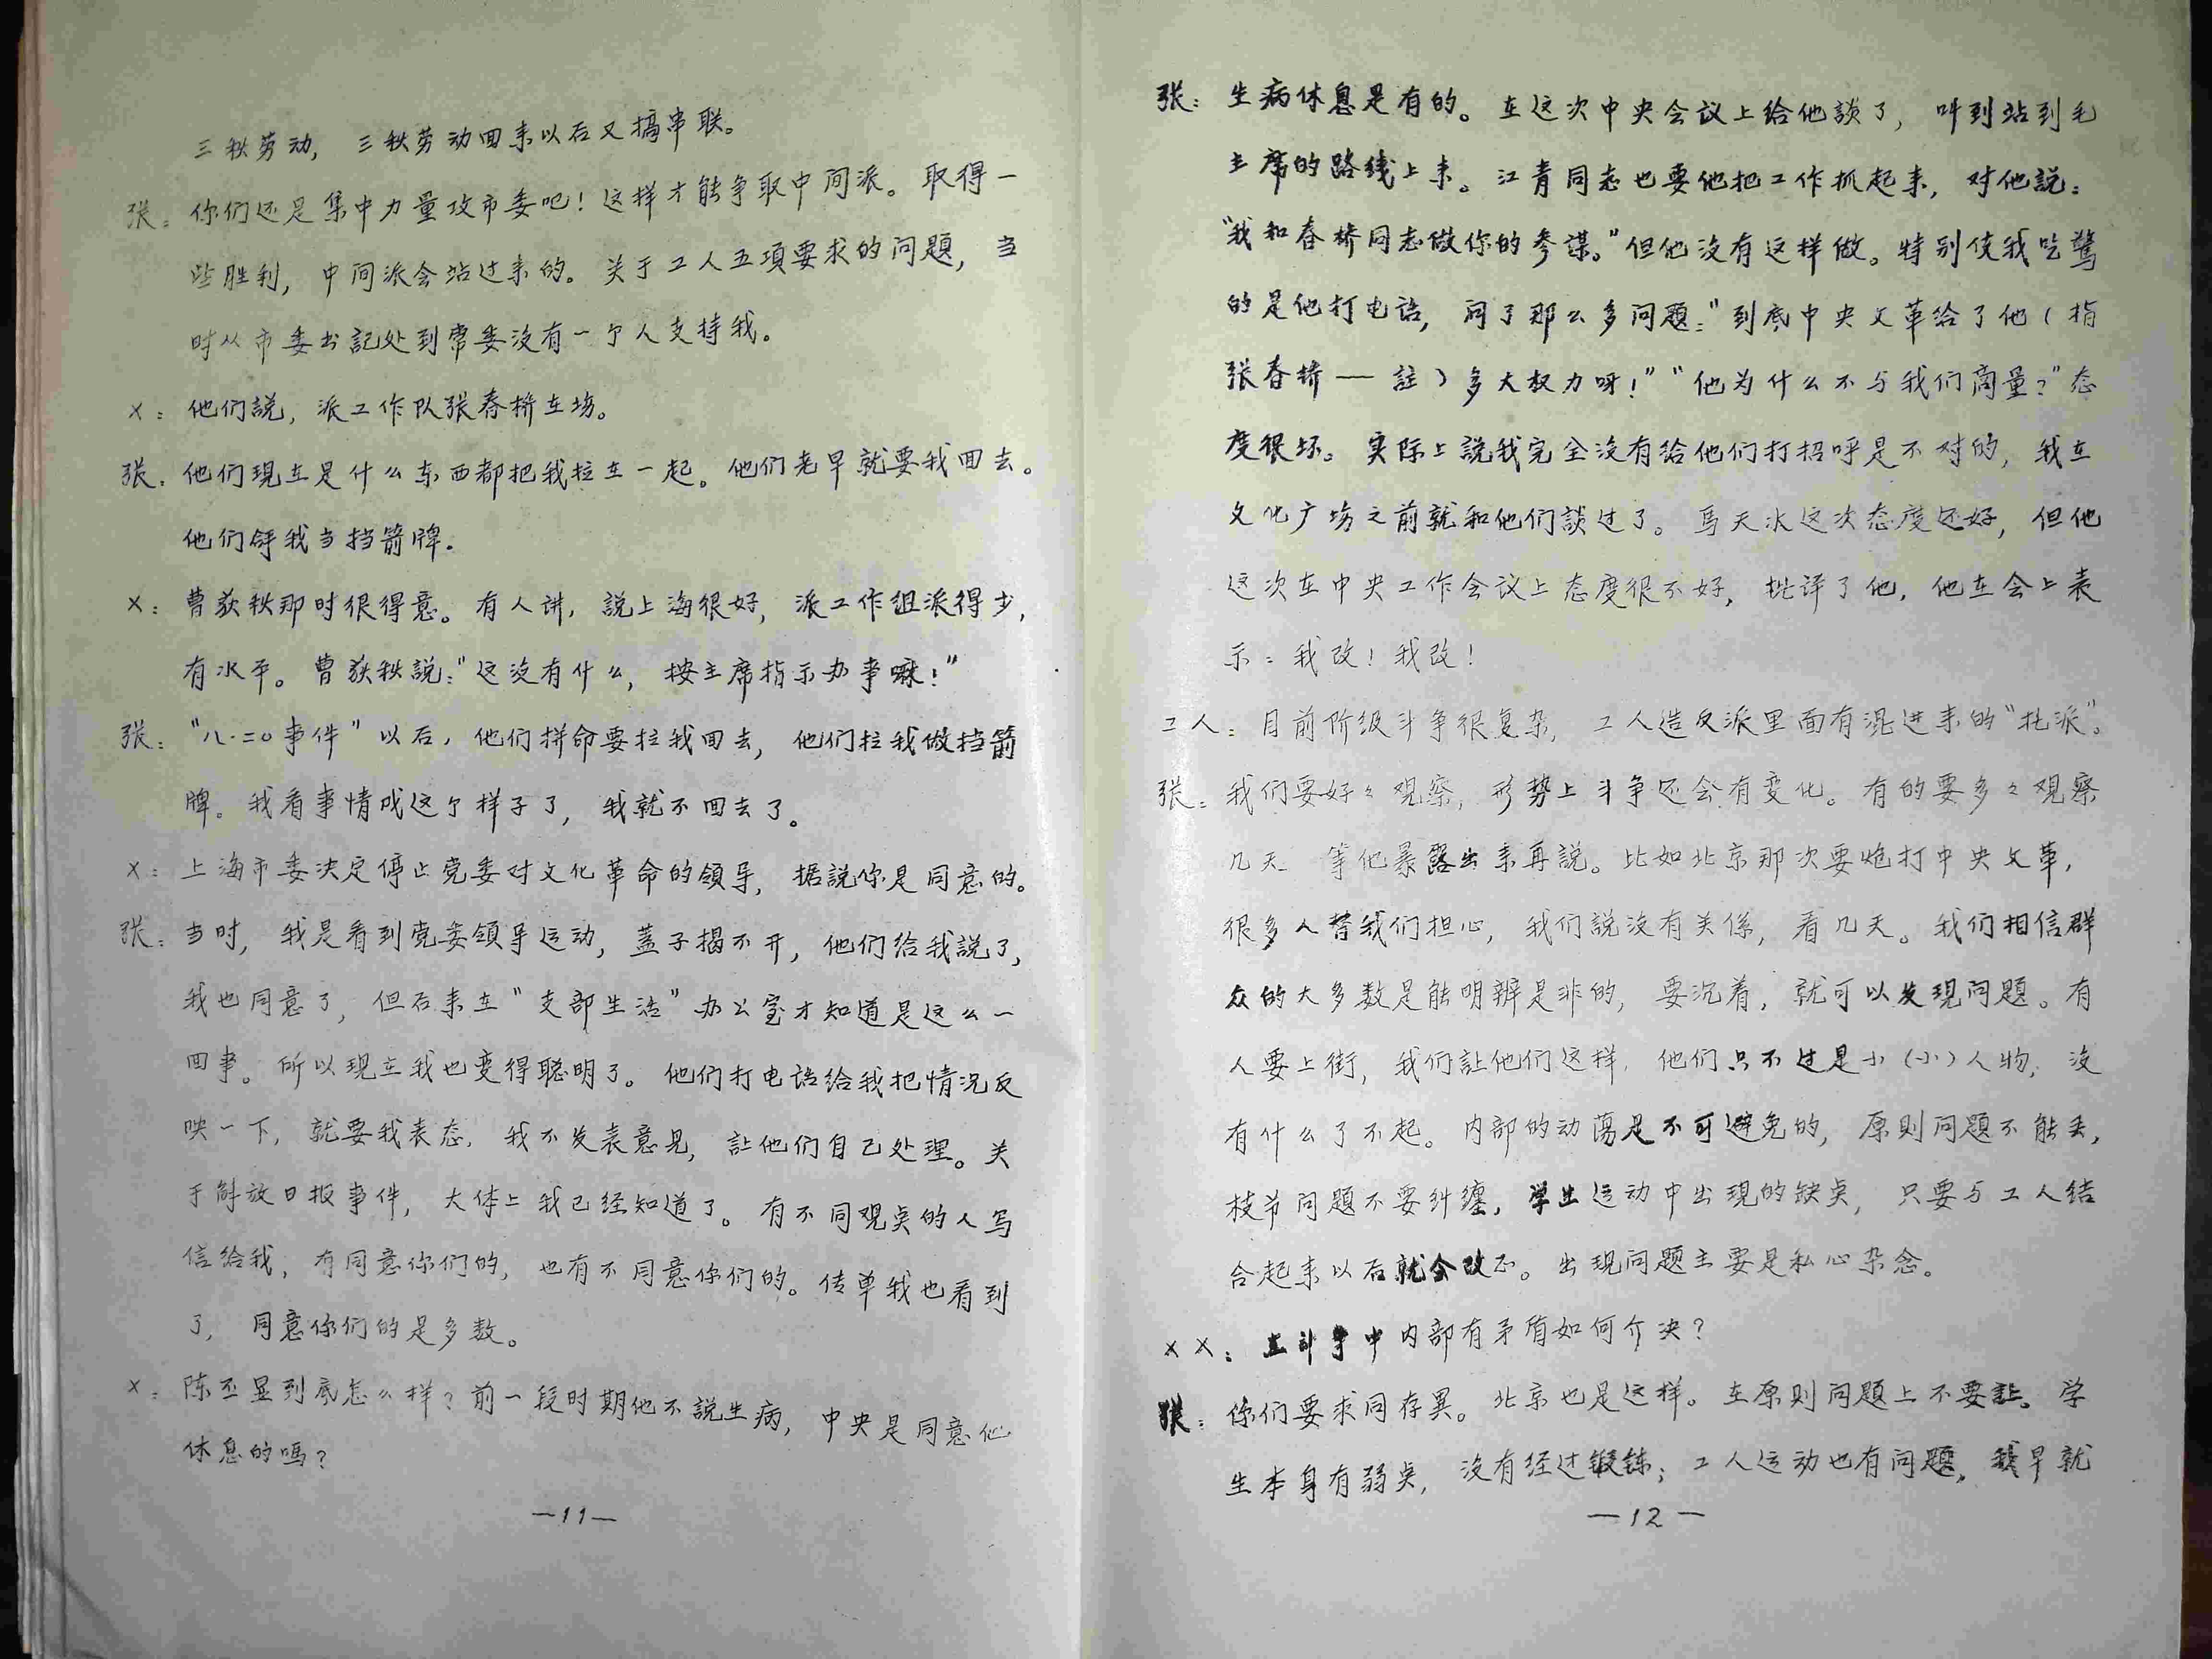 三秋劳动，三秋劳动回来以后又搞串联。
张：你们还是集中力量攻市委吧！这样才能争取中间派。取得一
些胜利，中间派会站过来的。关于工人五項要求的问題，当
时从市委书記处到常委没有一个人支持我。
×：他们説，派工作队张春桥在场。
张：他们現在是什么东西都把我拉在一起。他们老早就要我回去。
他们拿我当挡箭牌。
×：曹荻秋那时很得意。有人讲，説上海很好，派工作组派得少，
有水平。曹荻秋説：“这没有什么，按主席指示办事嘛！”
张：“八·二〇事件”以后，他们拼命要拉我回去，他们拉我做挡箭
牌。我看事情成这个样子了，我就不回去了。
×：上海市委决定停止党委对文化革命的領导，据説你是同意的。
张：当时，我是看到党委領导运动，蓋子揭不开，他们给我説了，
我也同意了，但后来在“支部生活”办公室才知道是这么一
回事。所以現在我也变得聪明了。他们打电話给我把情况反
映一下，就要我表态，我不发表意見，註他们自己处理。关
于解放日报事件，大体上我已经知道了。有不同观点的人写
信给我，有同意你们的，也有不同意你们的。传单我也看到
了，同意你们的是多数。
×：陈丕显到底怎么样？前一段时期他不說生病，中央是同意他
休息的嗎？
—11—
张：生病休息是有的。在这次中央会议上给他談了，叫到站到毛
主席的路线上来。江青同志也要他把工作抓起来，对他説：
“我和春桥同志做你的参謀。”但他没有这样做。特别使我吃驚
的是他打电話，问了那么多问題：“到底中央文革给了他（指
张春桥—註）多大权力呀！”“他为什么不与我们商量？”态
度很坏。实际上説我完全没有给他们打招呼是不对的，我在
文化广场之前就和他们談过了。馬天水这次态度还好，但他
这次在中央工作会议上态度很不好，批评了他，他在会上表
示：我改！我改！
工人：目前阶级斗争很复杂，工人造反派里面有混进来的“托派”。
张：我们要好々观察，形势上斗争还会有变化。有的要多々观察
几天 等他暴露出来再説。比如北京那次要炮打中央文革，
很多人替我们担心，我们説没有关係，看几天。我们相信群
众的大多数是能明辨是非的，要沉着，就可以发現问題。有
人要上街，我们註他们这样，他们只不过是小（小）人物，没
有什么了不起。内部的动荡是不可避免的，原则问題不能丢，
枝节问題不要纠缠，学生运动中出現的缺点，只要与工人结
合起来以后就会改正。出现问题主要是私心杂念。
××：在斗争中内部有矛盾如何介决？
张：你们要求同存異。北京也是这样。在原则问題上不要註。学
生本身有弱点，没有经过锻鍊；工人运动也有问题，我早就
—12—